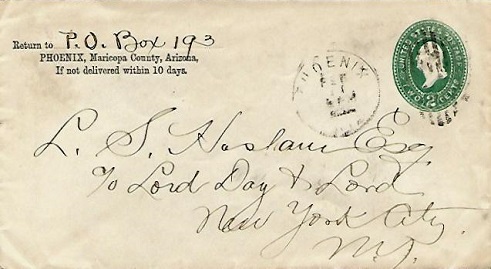 Return to P. O. Box 193
PHOENIX, Maricopa County, Arizona,
If not delivered within 10 days.
PHOENIX
UNITED STATES POSTAGE
TWO 2 CENTS
L. S. Haslam Esq
℅ Lord Day & Lord
New York City
N.Y.